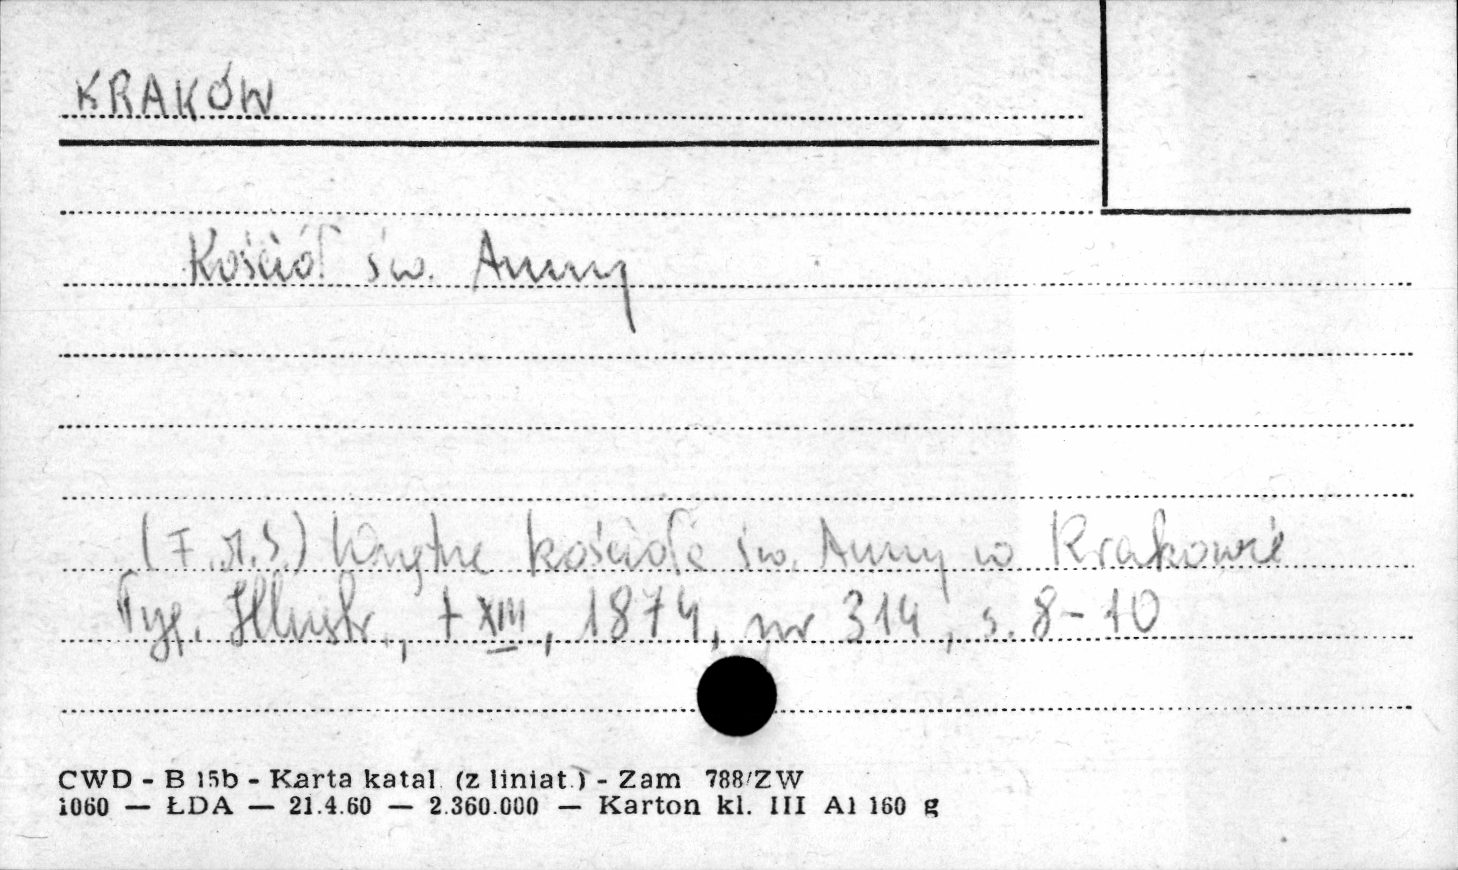 KRAKÓW
Kościół św. Anny
(F.M.S.) Wnętrze kościoła św. Anny w Krakowie
Tyg. Illustr., t XIII, 1874, nr 314, s. 8-10
CWD - B 15b - Karta katal. (z liniat.) - Zam 788/ZW
1060 — ŁDA — 21.4.60 — 2.360.000 — Karton kl. III A1 160 g